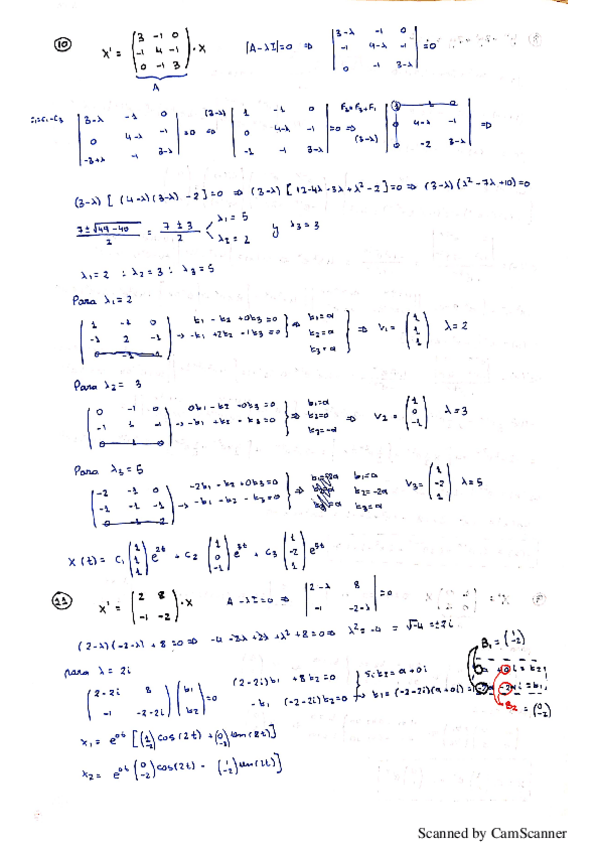 10 X' = (3 -1 0 / -1 4 -1 / 0 -1 3) · X |A-λI|=0 ⇒ |3-λ -1 0 / -1 4-λ -1 / 0 -1 3-λ| =0
A
|3-λ -1 0 / 0 4-λ -1 / -3+λ -1 3-λ| =0 ⇒ (3-λ) |1 -1 0 / 0 4-λ -1 / -1 -1 3-λ| =0 ⇒ F3=F3+F1 (3-λ) |1 -1 0 / 0 4-λ -1 / 0 -2 3-λ| ⇒
(3-λ) [ (4-λ)(3-λ) -2]=0 ⇒ (3-λ) [ 12-4λ-3λ+λ²-2]=0 ⇒ (3-λ)(λ²-7λ+10)=0
7±√49-40 / 2 = 7±3 / 2 < λ1=5 λ2=2 y λ3=3
λ1=2 ; λ2=3 ; λ3=5
Para λ1=2
(1 -1 0 / -1 2 -1 / 0 -1 1) → k1-k2+0k3=0 → -k1+2k2-1k3=0 } ⇒ k1=a k2=a k3=a } ⇒ V1= (1 / 1 / 1) λ=2
Para λ2= 3
(0 -1 0 / -1 1 -1 / 0 -1 0) 0k1-k2-0k3=0 → -k1+k2-k3=0 } ⇒ k1=a k2=0 k3=-a ⇒ V2= (1 / 0 / -1) λ=3
Para λ3=5
(-2 -1 0 / -1 -1 -1 / 0 -1 -2) → -2k1-k2+0k3=0 -k1-k2-k3=0 } ⇒ k1=a k2=-2a k3=a V3= (1 / -2 / 1) λ=5
X(t)= C1 (1 / 1 / 1) e^2t + C2 (1 / 0 / -1) e^3t + C3 (1 / -2 / 1) e^5t
11 X' = (2 8 / -1 -2) · X A-λI=0 ⇒ |2-λ 8 / -1 -2-λ| =0
(2-λ)(-2-λ)+8=0 ⇒ -4-2λ+2λ+λ²+8=0 ⇒ λ²=-4 = √-4 = ±2i
para λ= 2i
(2-2i 8 / -1 -2-2i) (k1 / k2) =0 (2-2i)k1 +8k2=0 -k1 (-2-2i)k2=0 } Si k2=a+0i → k1=(-2-2i)(a+0i)=
B1= (1 / -2)
B2 = (0 / -2)
X1= e^0t [(1 / -2) cos(2t) + (0 / -2) sen(2t)]
X2= e^0t (0 / -2) cos(2t) - (1 / -2) sen(2t)]
Scanned by CamScanner